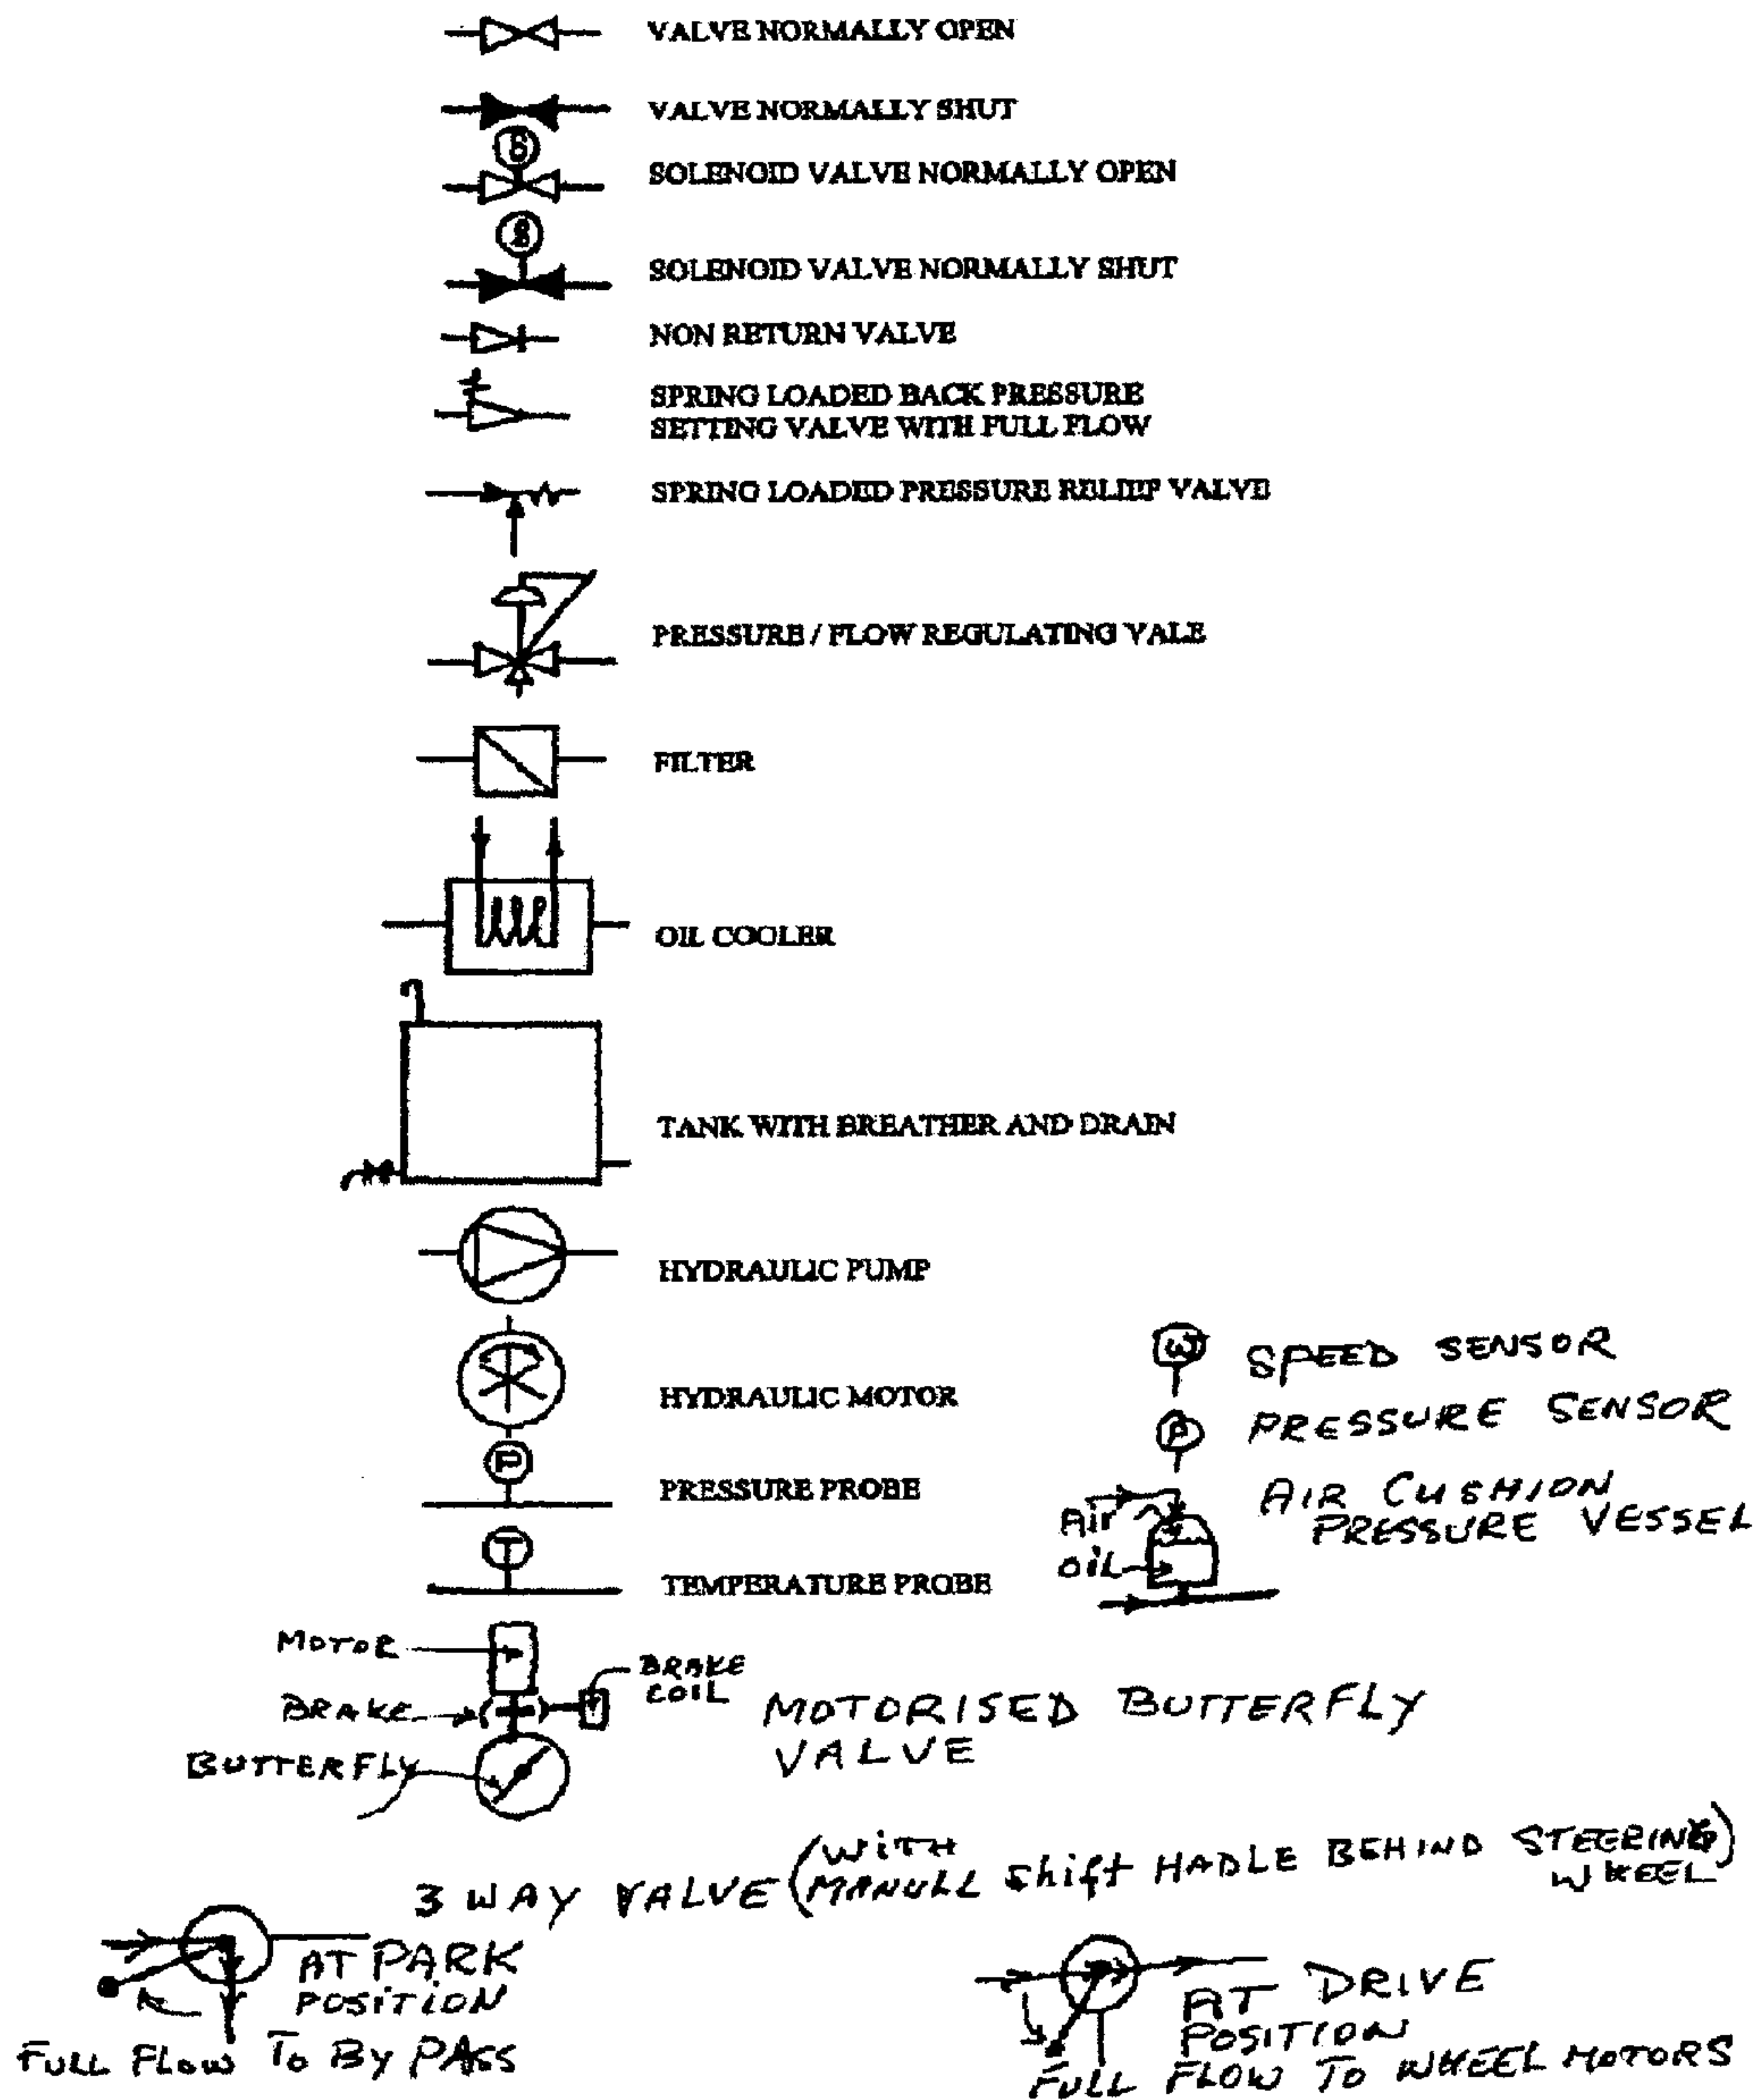 VALVE NORMALLY OPEN
VALVE NORMALLY SHUT
S
SOLENOID VALVE NORMALLY OPEN
S
SOLENOID VALVE NORMALLY SHUT
NON RETURN VALVE
SPRING LOADED BACK PRESSURE
SETTING VALVE WITH FULL FLOW
SPRING LOADED PRESSURE RELIEF VALVE
PRESSURE / FLOW REGULATING VALE
FILTER
OIL COOLER
TANK WITH BREATHER AND DRAIN
HYDRAULIC PUMP
HYDRAULIC MOTOR
P
PRESSURE PROBE
T
TEMPERATURE PROBE
ω SPEED SENSOR
P PRESSURE SENSOR
AIR CUSHION
PRESSURE VESSEL
Air
OiL
MOTOR
BRAKE
COIL
BRAKE
BUTTERFLY
MOTORISED BUTTERFLY
VALVE
3 WAY VALVE (WITH
MANULL Shift HADLE BEHIND STEERING
WHEEL)
AT PARK
POSITION
FULL FLOW To By PASS
AT DRIVE
POSITION
FULL FLOW TO WHEEL MOTORS